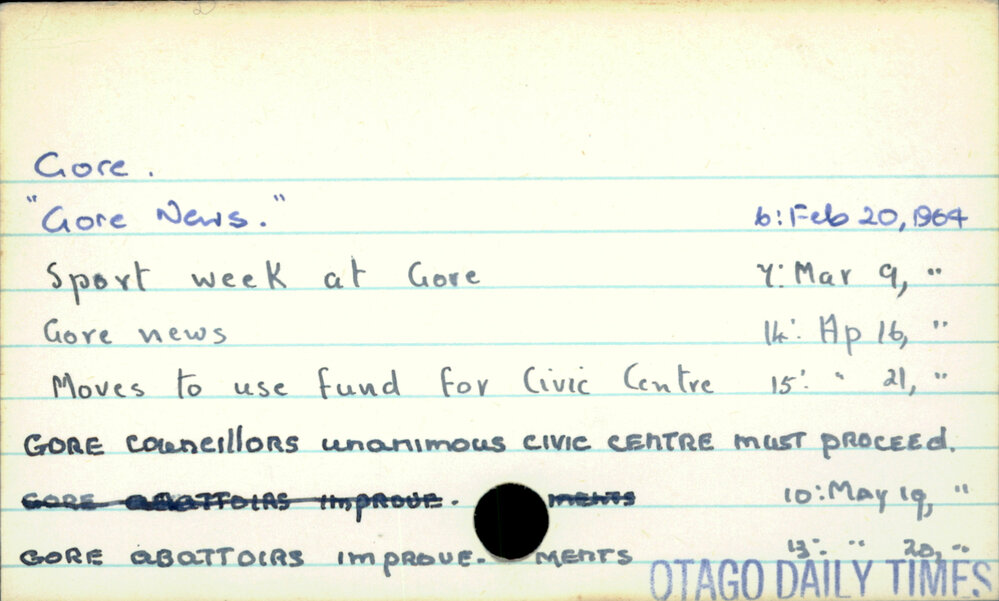 Gore.
"Gore News." 6: Feb 20, 1964
Sport week at Gore 7: Mar 9, "
Gore news 14: Ap 16, "
Moves to use fund for Civic Centre 15: " 21, "
GORE councillors unanimous civic centre must proceed.
GORE abattoirs improve-ments 10: May 19, "
GORE abattoirs improve-ments 13: " 20, "
OTAGO DAILY TIMES